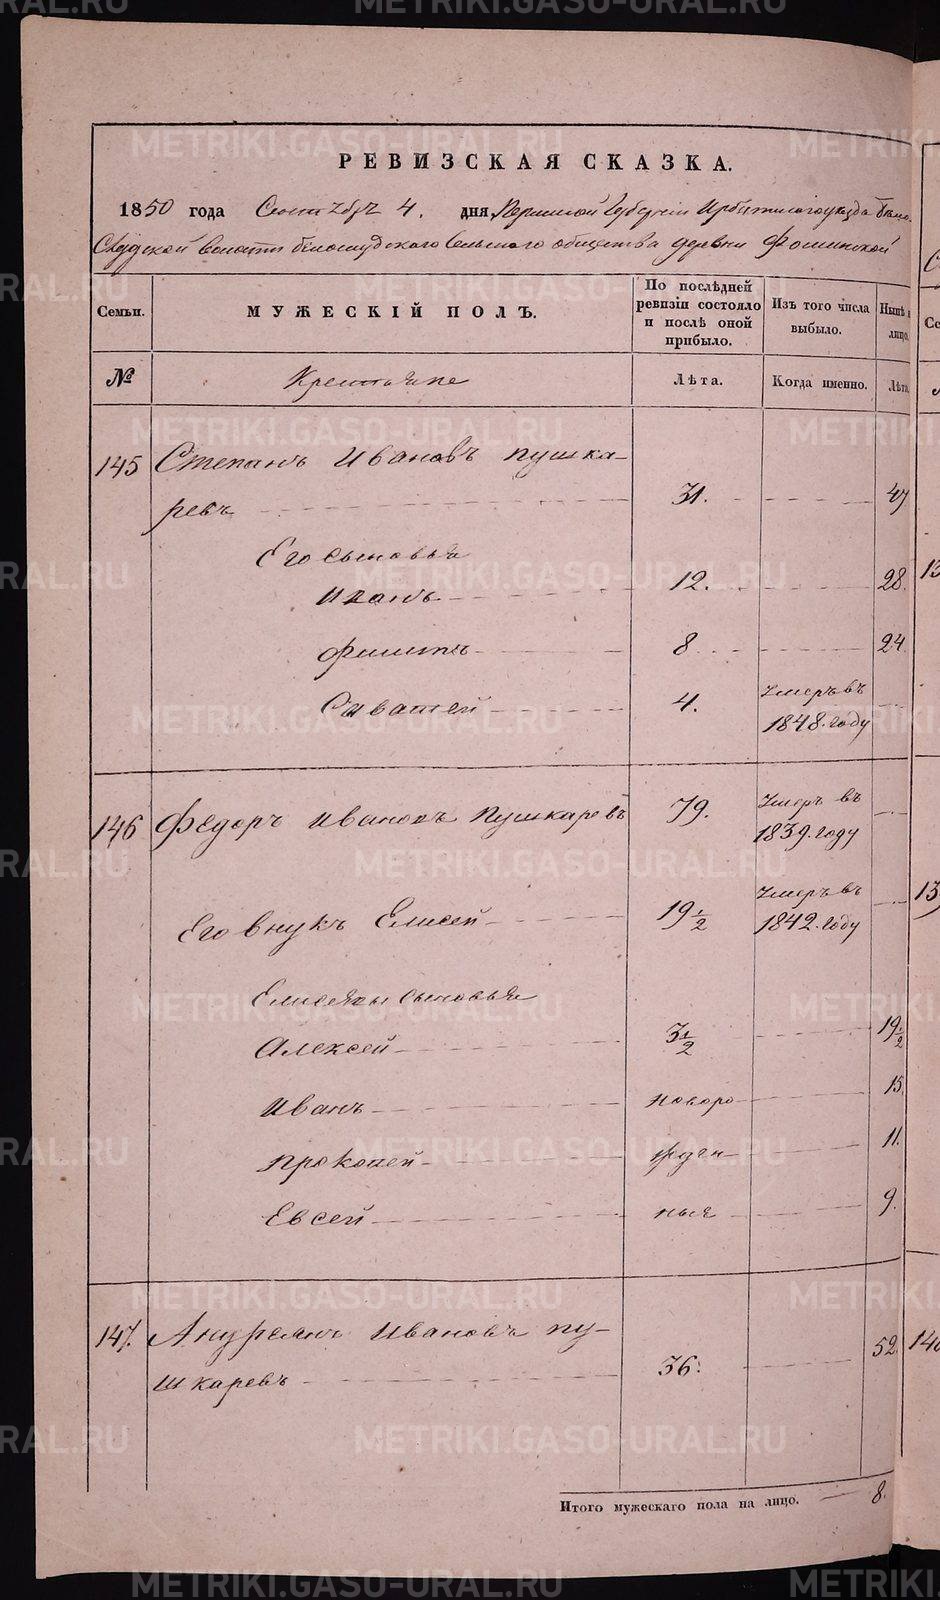 РЕВИЗСКАЯ СКАЗКА.
1850 года Сентября 4. дня, Пермской Губернии Ирбитскагоуезда Бѣло-
Слудской волости бѣлослудскаго Сельскаго общества деревни Фоминской
Семьи.
МУЖЕСКІЙ ПОЛЪ.
По послѣдней ревизіи состояло и послѣ оной прибыло.
Изъ того числа выбыло.
Нынѣ лицо.
№ Крестьяне Лѣта. Когда именно. Лѣта
145 Степанъ Ивановъ Пушка-
ревъ 31. 47
Его сыновья
Иванъ 12. 28.
Филипъ 8 24
Саватей 4. Умеръ въ 1848. году
146 Федоръ Ивановъ Пушкаревъ 79. Умеръ въ 1839. году
Его внукъ Елисей 19 1/2 Умеръ въ 1842. году
Елисеявы сыновья
Алексей 3 1/2 19 1/2
Иванъ новоро 15.
Прокопей жден 11.
Евсей ныя 9.
147. Андреянъ Ивановъ Пу-
шкаревъ 36. 52.
Итого мужескаго пола на лицо. 8.
METRIKI.GASO-URAL.RU